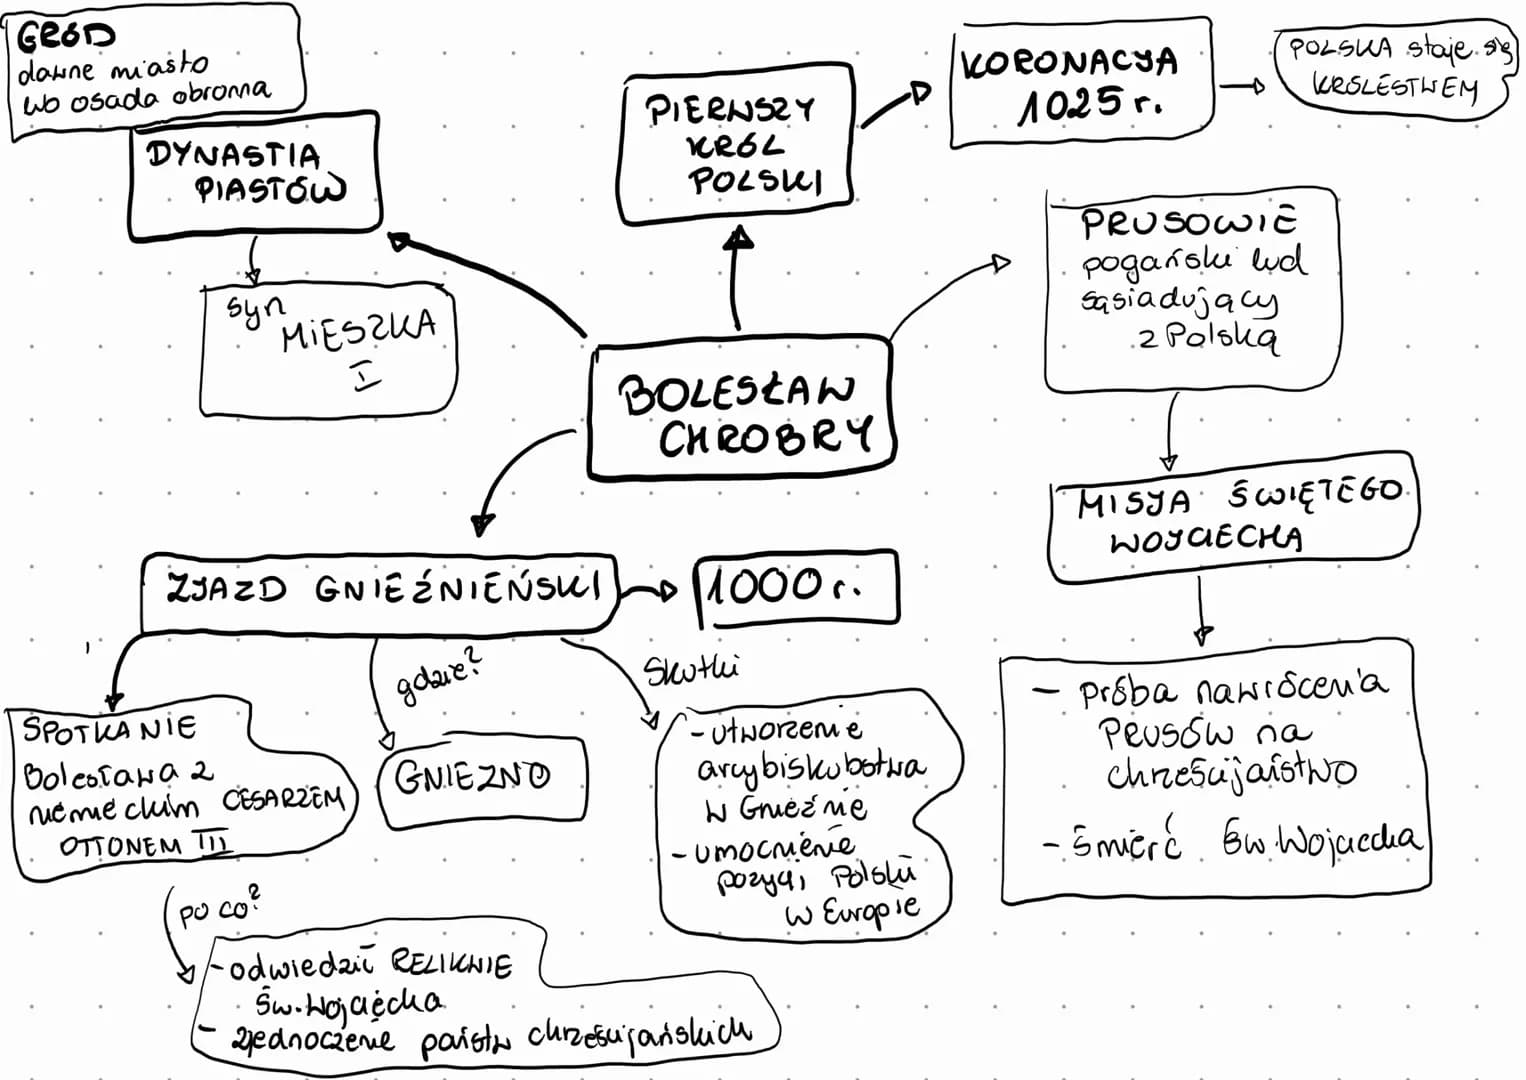 GRÓD
dawne miasto
lub osada obronna
DYNASTIA
PIASTÓW
syn
MIESZKA
I
PIERWSZY
KRÓL
POLSKI
KORONACJA
1025 r.
POLSKA staje się
KRÓLESTWEM
BOLESŁAW
CHROBRY
PRUSOWIE
pogański lud
sąsiadujący
z Polską
MISJA ŚWIĘTEGO
WOJCIECHA
- próba nawrócenia
Prusów na
chrześcijaństwo
- śmierć św. Wojciecha
ZJAZD GNIEŹNIEŃSKI
1000 r.
SPOTKANIE
Bolesława z
niemieckim CESARZEM
OTTONEM III
gdzie?
GNIEZNO
Skutki
- utworzenie
arcybiskubstwa
w Gnieźnie
- umocnienie
pozycji Polski
w Europie
po co?
- odwiedzić RELIKWIE
św. Wojciecha
- zjednoczenie państw chrześcijańskich